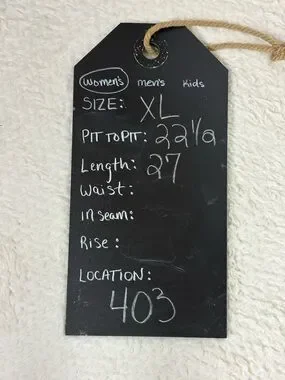 Women's men's Kids
SIZE: XL
PIT TO PIT: 22 1/2
Length: 27
Waist:
Inseam:
Rise:
LOCATION:
403